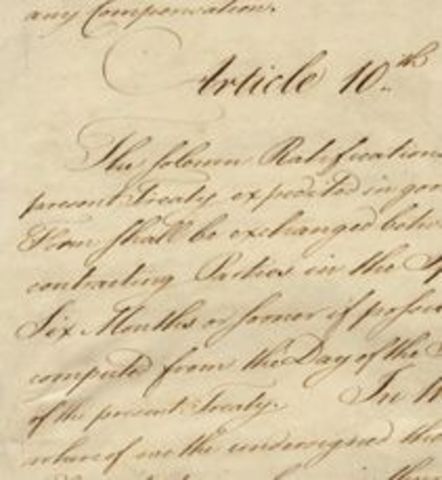 any Compensation.
Article 10th
The solemn Ratifications
present Treaty expedited in goo
Form shall be exchanged betw
contracting Parties in the Sp
Six Months or sooner if possi
computed from the Day of the S
of the present Treaty. In
whereof we the undersigned